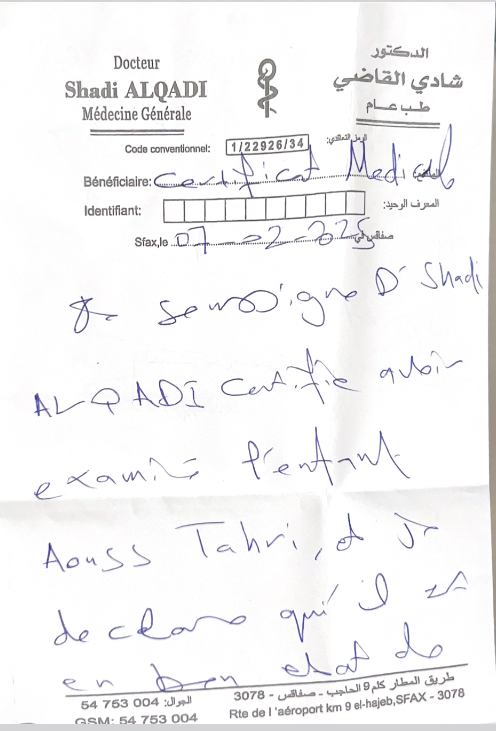 Docteur
Shadi ALQADI
Médecine Générale
الدكتور
شادي القاضي
طب عام
Code conventionnel: 1/22926/34
Bénéficiaire: Certificat Medical
Identifiant: المعرف الوحيد:
Sfax,le 07-02-2025 صفاقس في
Je soussigné Dr Shadi
ALQADI Certifie avoir
examiné l'enfant
Aouss Tahri, et je
declare qu'il est
en bon etat de
طريق المطار كلم 9 الحاجب - صفاقس - 3078
الجوال: 004 753 54
Rte de l'aéroport km 9 el-hajeb,SFAX - 3078
GSM: 54 753 004